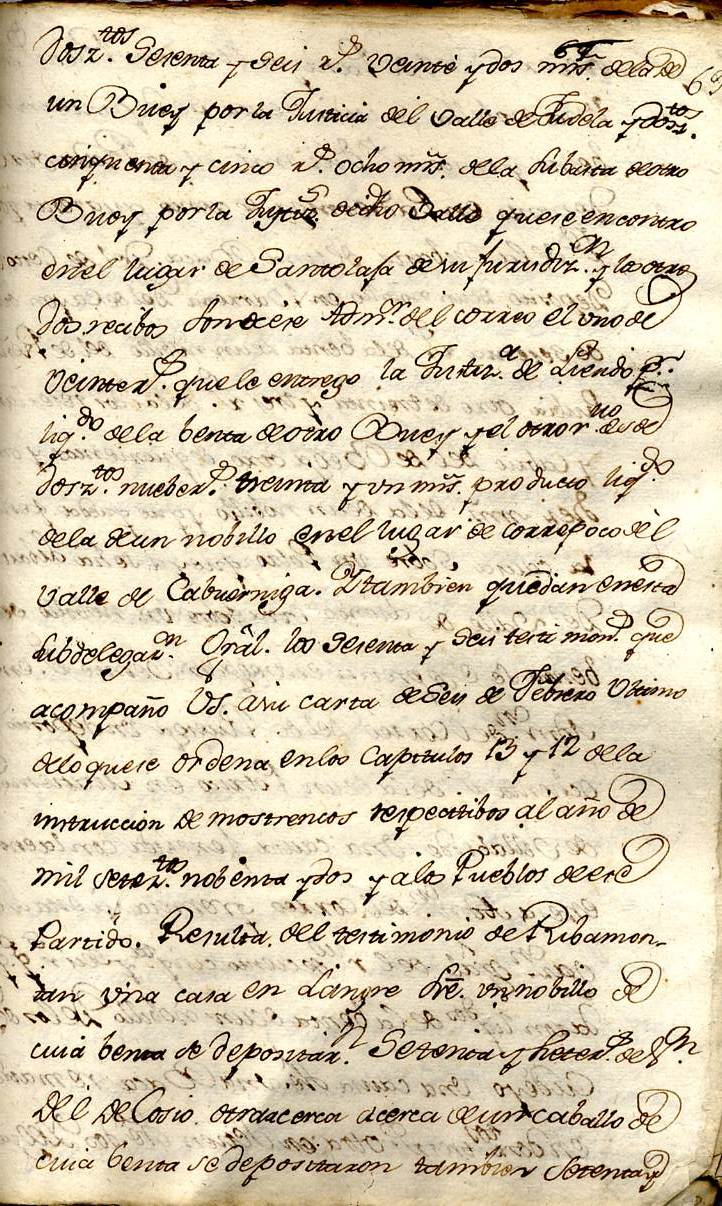 Dosz.tos Sesenta y Seis r.s Veinte y dos mrs. dela de
un Buey por la Justicia del Valle de Tudela y Dosz.tos
cinquenta y cinco r.s ocho mrs. dela subasta de otro
Buey por la Justiz.a de dho Valle que se encontro
en el lugar de Santolaja de su Jurisdiz.on y los otros
Dos recibos son de ese Adm.or del correo el uno de
Veinte r.s que le entrego la Justiz.a de Liendo p.r
liq.do dela benta de otro Buey y el otro r.uo es de
Dosz.tos nueber.s treinta y un mrs. producto liq.do
dela de un nobillo en el lugar de correpoco dèl
Valle de Cabuerniga. Y tambien quedan en esta
Subdelegaz.on Gràl. los Sesenta y Seis testimon.s que
acompaño VS. a su carta de Seis de Febrero Ultimo
delo que se ordena en los Capitulos 13 y 12 dela
instruccion de mostrencos respectibos al año de
mil setez.tos nobenta y dos y a los Pueblos de ese
Partido. Resulta del testimonio de Ribamon-
tan una casa en Langre sre. un nobillo de
cuia benta se depositar.n Setenta y siete r.s de v.n
Dèl de Cosio otra acerca de un caballo de
cuia benta se depositaron tambien setenta y